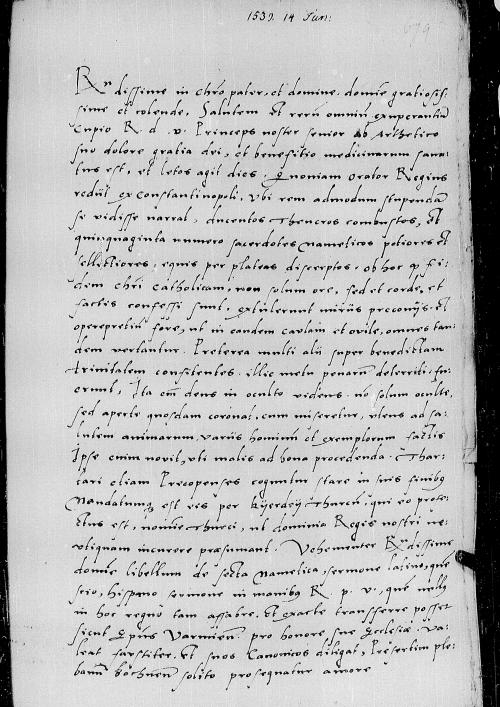 1539. 14 Jun:
679
R(n) dissime in chro pater, et domine, domine gratiosis:
sime et colende, Salutem et rerum omnium exuperantiam
Cupio R. d. v. Princeps noster senior ab Arthetico
suo dolore gratia dei, et benefitio medicinarum sana:
tus est, et letos agit dies. Quoniam Orator Regius
rediit ex Constantinopoli, Vbi rem admodum stupendam
se vidisse narrat, ducentos Theucros combustos, Et
quinquaginta numero sacerdotes Mameticos potiores et
sellectiores, equis per plateas discerptos. ob hoc q fi:
dem chri catholicam, non solum ore, sed et corde, et
factis confessi sunt, extulerunt miris preconijs. et
opereprecium fore, ut in eandem caulam et ovile, omnes tan:
dem vertantur. Preterea multi alij super benedictam
trinitatem consitentes. illic metu penarum deterriti. fu:
erunt, Ita em deus in oculto videns. no solum oculte,
sed aperte quosdam coronat, cum miseretur, utens ad sa:
lutem animarum, variis hominum et exemplorum factis
Ipse enim novit, uti malis ad bona procedenda. Thar:
tari etiam Precopenses coguntur stare in suis finibus
Mandatumq est eis per Kyerdeÿ Thurcum, qui eo prote:
ctus est, nomine Thurci, ut dominia Regis nostri ne:
utiquam incurere presumant. Vehementer R dissime
domine libellum de secta Mametica, sermone latino, quem
scio, hispano sermone in manibus R. p. v., quem nullus
in hoc regno tam affabre, et exacte transferre posset
sicut Epus Varmien. pro honore sue Ecclesie. Va:
leat faustiter. Et suos Canonicos diligat, Presertim ple:
banum solito prosequatur amore